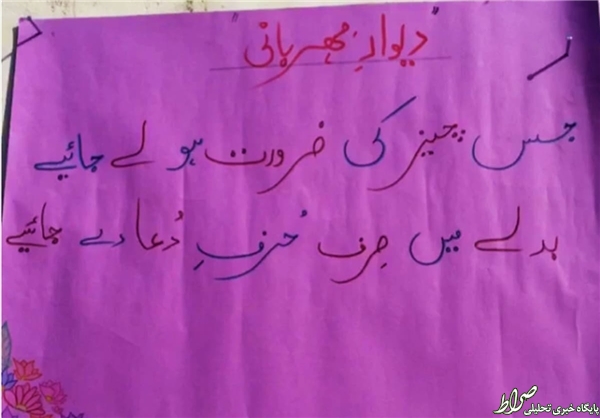 "دیوارِ مہربانی"
جس چیز کی ضرورت ہو لے جائیے
بدلے میں صِرف حُرفِ دُعا دے جائیے
صراط
پایگاه خبری تحلیلی